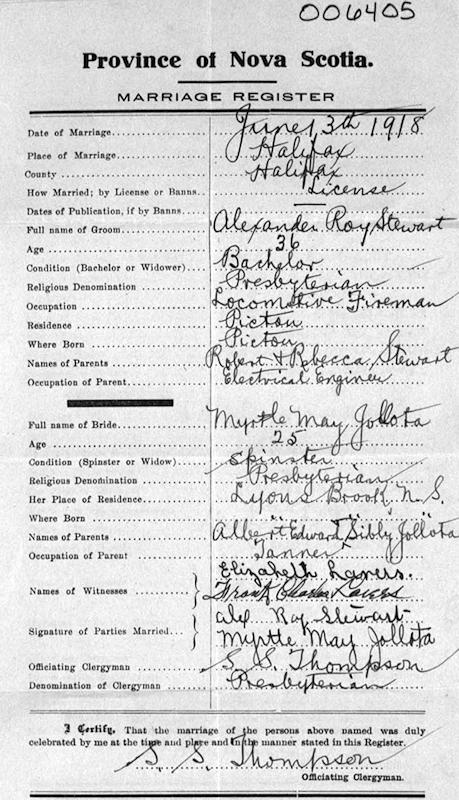 006405
Province of Nova Scotia.
MARRIAGE REGISTER
Date of Marriage June 13th 1918
Place of Marriage Halifax
County Halifax
How Married; by License or Banns License
Dates of Publication, if by Banns
Full name of Groom Alexander Roy Stewart
Age 36
Condition (Bachelor or Widower) Bachelor
Religious Denomination Presbyterian
Occupation Locomotive Fireman
Residence Pictou
Where Born Pictou
Names of Parents Robert & Rebecca Stewart
Occupation of Parent Electrical Engineer
Full name of Bride Myrtle May Jollota
Age 25
Condition (Spinster or Widow) Spinster
Religious Denomination Presbyterian
Her Place of Residence Lyons Brook N. S.
Where Born " " "
Names of Parents Albert Edward & Sibly Jollota
Occupation of Parent Tanner
Names of Witnesses Elizabeth Lavers.
Frank Charles Lavers
Signature of Parties Married Alex Roy Stewart
Myrtle May Jollota
Officiating Clergyman S. S. Thompson
Denomination of Clergyman Presbyterian
I Certify, That the marriage of the persons above named was duly
celebrated by me at the time and place and in the manner stated in this Register.
S. S. Thompson
Officiating Clergyman.